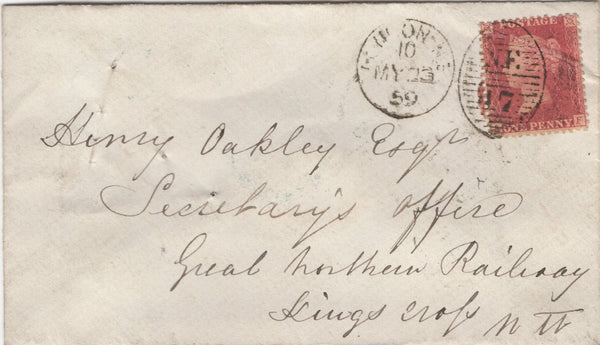 LONDON-N.E
10
MY 23
59
N.E.
17
POSTAGE
ONE PENNY
F
Henry Oakley Esqr
Secretary's office
Great Northern Railway
Kings Cross N W